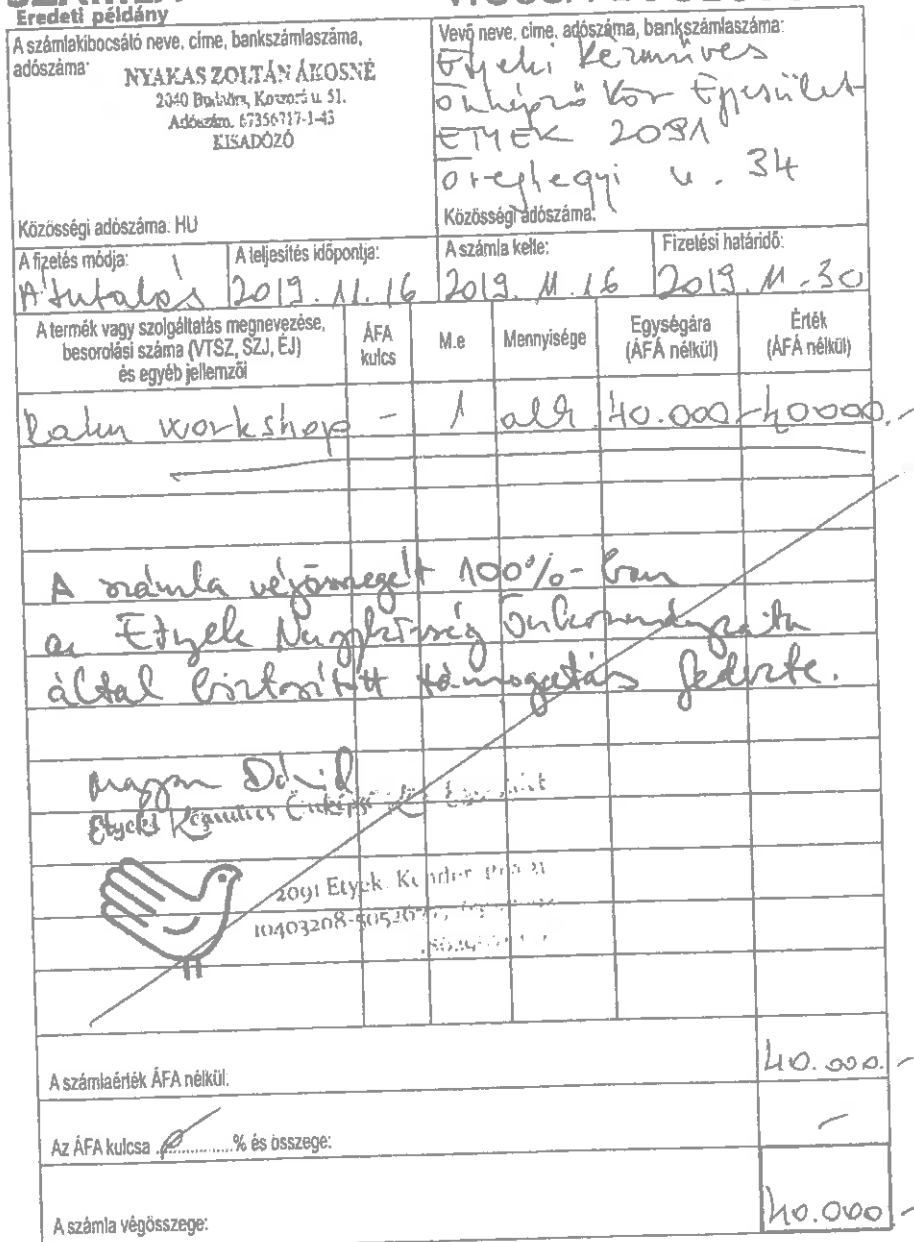 Eredeti példány
A számlakibocsáló neve, címe, bankszámlaszáma,
adószáma:
NYAKAS ZOLTÁN ÁKOSNÉ
2040 Budaörs, Kossuth u. 51.
Adószám: 67356717-1-43
KISADÓZÓ
Közösségi adószáma: HU
Vevő neve, címe, adószáma, bankszámlaszáma:
Etyeki Kézműves
Önképző Kör Egyesület
ETYEK 2091
Öreghegyi u. 34
Közösségi adószáma:
A fizetés módja:
Átutalás
A teljesítés időpontja:
2019. 11. 16
A számla kelte:
2019. 11. 16
Fizetési határidő:
2019. 11. 30
A termék vagy szolgáltatás megnevezése,
besorolási száma (VTSZ, SZJ, ÉJ)
és egyéb jellemzői
ÁFA
kulcs
M.e
Mennyisége
Egységára
(ÁFA nélkül)
Érték
(ÁFA nélkül)
workshop - 1 alk 40.000 40000.-
A számla végösszegét 100%-ban
az Etyek Nagyközség Önkormányzata
által biztosított támogatás fedezte.
Dávid
Etyeki Kézműves Önképző Kör Egyesület
2091 Etyek, Kender
10403208-
A számlaérték ÁFA nélkül:
40.000.-
Az ÁFA kulcsa ..............% és összege:
-
A számla végösszege:
40.000.-